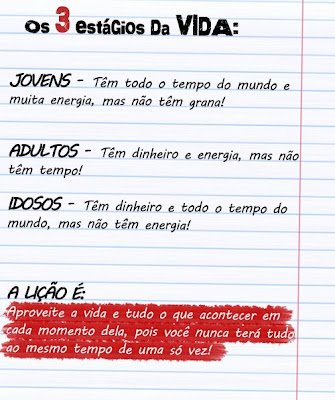 os 3 estágios da VIDA:
JOVENS - Têm todo o tempo do mundo e
muita energia, mas não têm grana!
ADULTOS - Têm dinheiro e energia, mas não
têm tempo!
IDOSOS - Têm dinheiro e todo o tempo do
mundo, mas não têm energia!
A LIÇÃO É:
Aproveite a vida e tudo o que acontecer em
cada momento dela, pois você nunca terá tudo
ao mesmo tempo de uma só vez!